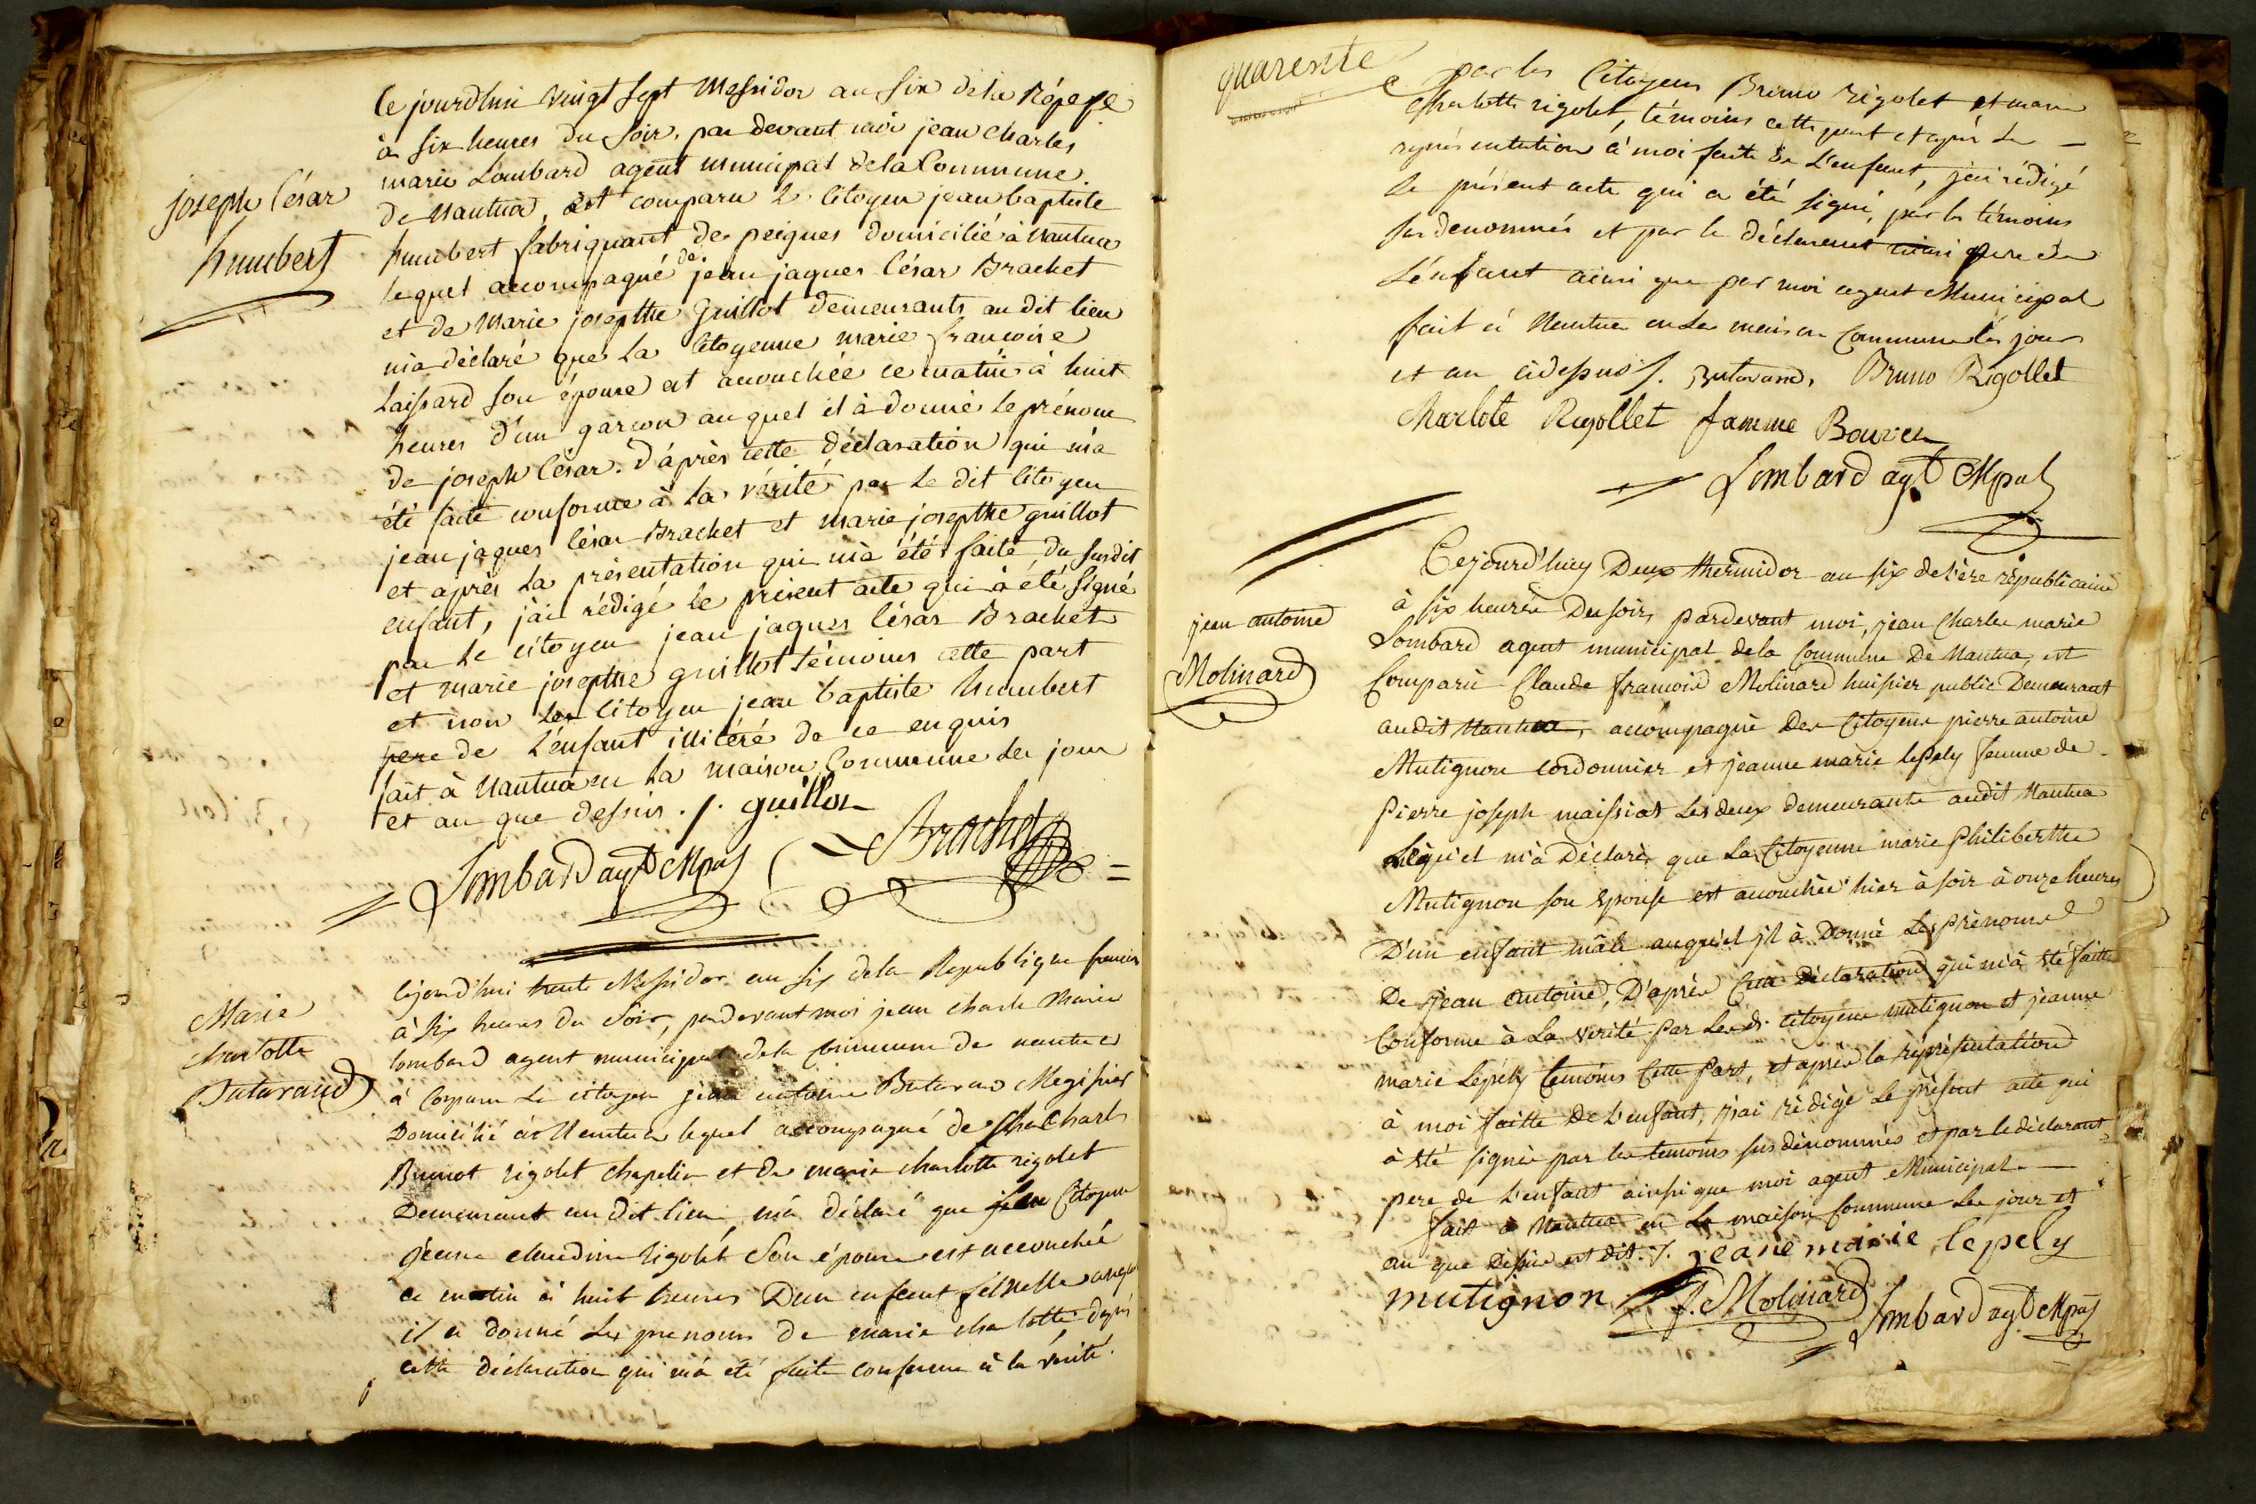 joseph César
humbert
Ce jourdhui vingt sept Messidor an Six de la
à six heures du soir, par devant moi jean charles
marie Lombard agent municipal de la Commune
de Nantua, est comparu le Citoyen jean baptiste
humbert fabriquant de peignes domicilié à Nantua
lequel accompagné de jean jaques César Brachet
et de Marie josepthe Guillot demeurants au dit lieu
m'a déclaré que la Citoyenne marie francoise
Laissard son épouse est accouchée ce matin à huit
heures d'un garcon auquel il à donné le prénom
de joseph César. d'après cette déclaration qui m'a
été faite conforme à la vérité par le dit Citoyen
jean jaques César Brachet et marie josepthe guillot
et après la présentation qui m'à été faite du susdit
enfant, j'ai rédigé le présent acte qui à été signé
par le citoyen jean jaques César Brachet
et marie josepthe guillot témoins cette part
et non le Citoyen jean baptiste humbert
pere de L'enfant illitéré de ce enquis
fait à Nantua en la maison Commune les jour
et an que dessus ./. guillot
Lombard agt Mpal Brachet
Marie
charlotte
Butavand
Cejourd'hui trente Messidor an six dela Republique
à six heures du Soir, pardevant moi jean charle Marie
lombard agent municipal dela Commune de nantua
à Comparu le citoyen jean antoine Butavand Megissier
Domicilié à Nantua lequel accompagné de Charle
Brunot rigolet chapelier et de marie charlotte rigolet
Demeurant au dit lieu, m'à déclaré que la Citoyene
jeane claudine rigolet Son épouse est accouchée
ce matin à huit heures D'un enfant femelle auquel
il a donné les prenoms de marie charlotte d'après
cette déclaration qui m'à été faite conforme à la vérité.
quarente
par les Citoyens Bruno rigolet et marie
charlotte rigolet, témoins cette part et après la
représentation à moi faite de L'enfant, j'ai rédigé
le présent acte qui a été signé, par les témoins
sus denommés et par le déclarant pere de
L'énfant ainsi que par moi agent Municipal
fait à Nantua en la maison Commune les jour
et an cidessus ./. Butavand, Bruno Rigollet
Charlote Rigollet famme Bouvet
Lombard agt Mpal
jean antoine
Molinard
Cejourd'huy Deux thermidor an six de l'ère républicaine
à six heures Du soir, pardevant moi, jean Charles marie
Lombard agent municipal dela Commune De Nantua, est
Comparu Claude francois Molinard huissier public Demeurant
audit Nantua, accompagné Des Citoyens pierre antoine
Mutignon cordonnier et jeanne marie lepely femme de
Pierre joseph maissiat Les deux demeurants audit Nantua
Lequel m'à Déclaré que La Citoyenne marie Philiberthe
Mutignon son épouse est accouchée hier à soir à onze heures
D'un enfant mâle auquel il à Donné Le prénome
De jean antoine, D'après Cette déclaration qui m'à été faitte
Conforme à La vérité par Les ds. Citoyens mutignon et jeanne
marie Lepely temoins Cette part, et après la réprésentation
à moi faitte De L'enfant, j'ai rédigé Le présent acte qui
à été signée par les temoins sus dénommés et par le déclarant
pere de L'enfant ainssi que moi agent Municipal
fait à Nantua en La maison Commune Les jour et
an que Dessus est dit ./. jeane marie lepely
mutignon f. Molinard Lombard agt Mpal